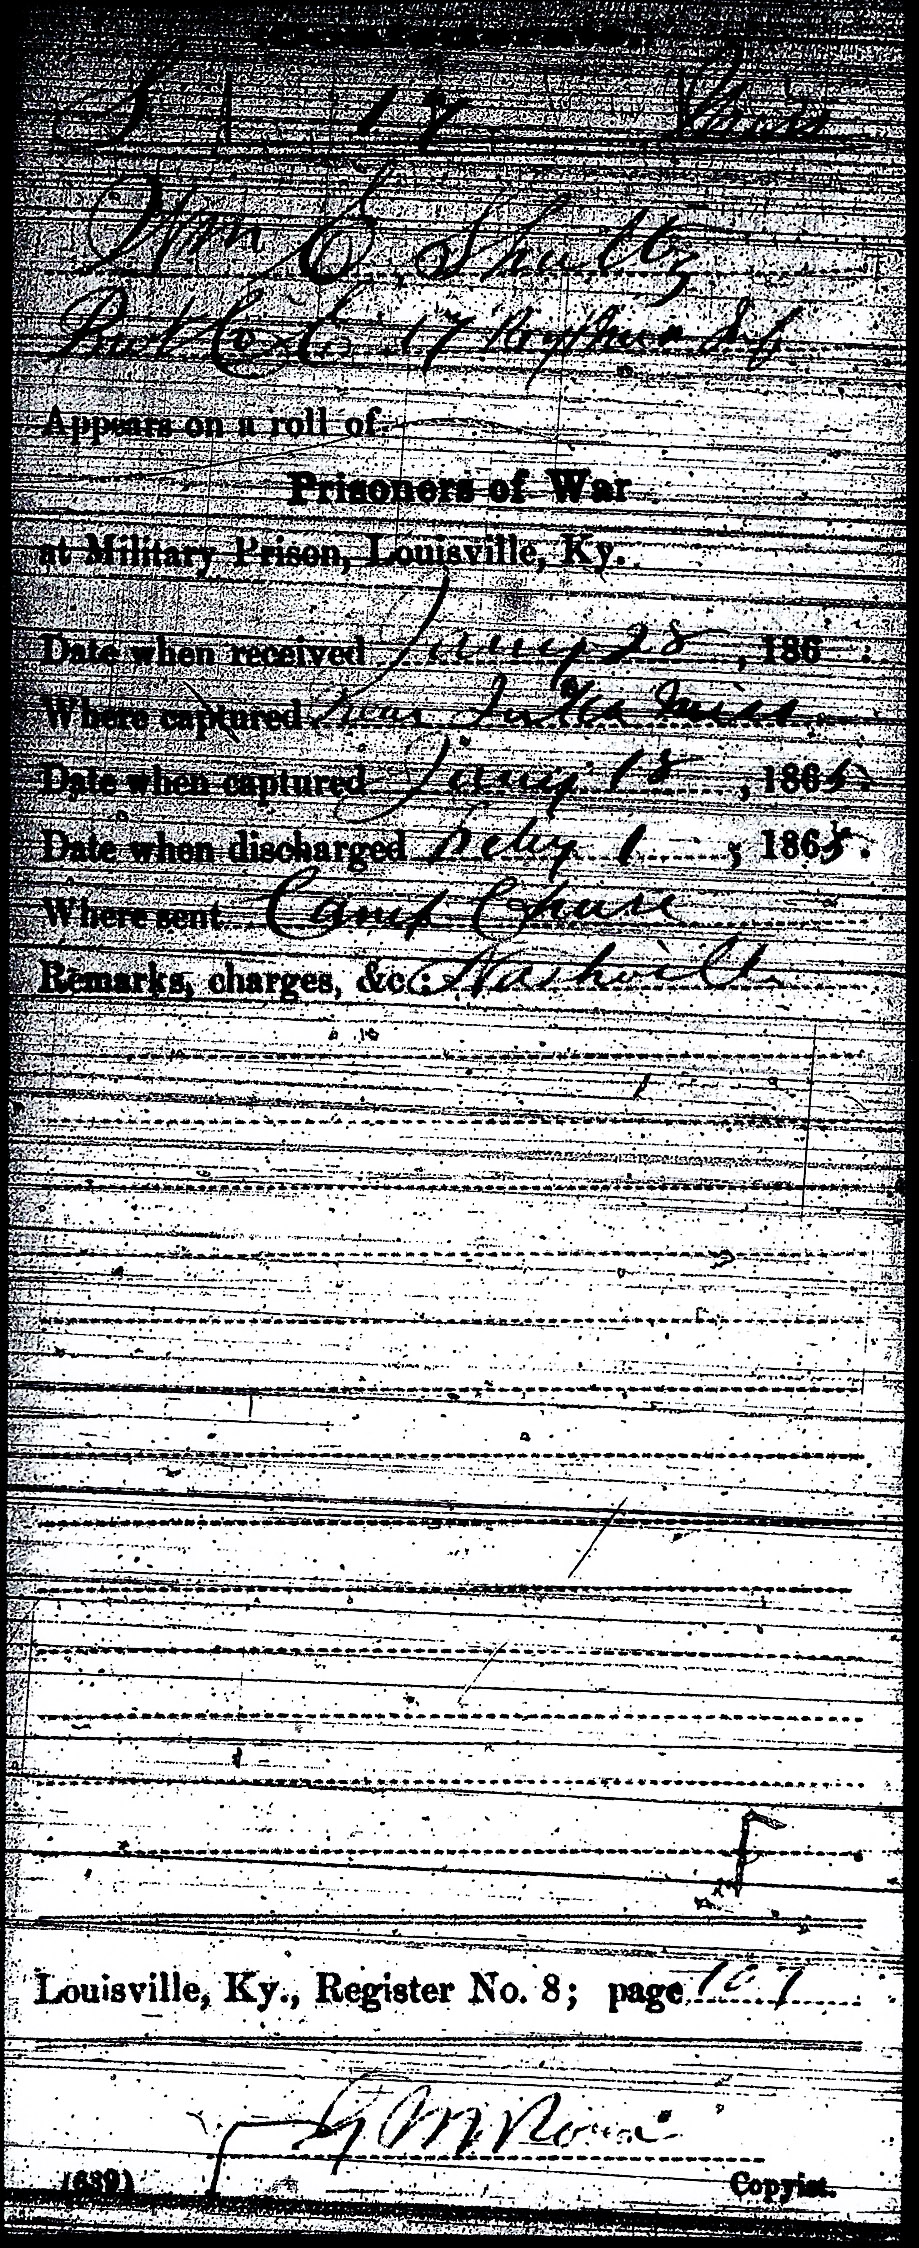 S 17
Wm E. Shultz
Pvt Co. E. 17 Inf
Appears on a roll of
Prisoners of War
at Military Prison, Louisville, Ky.
Date when received Jany 28, 186 .
Where captured Near Miss
Date when captured Jany 18, 1865.
Date when discharged Feby 1, 1865.
Where sent Camp Chase
Remarks, charges, &c.: Nashville
Louisville, Ky., Register No. 8; page
G M
(639) Copyist.